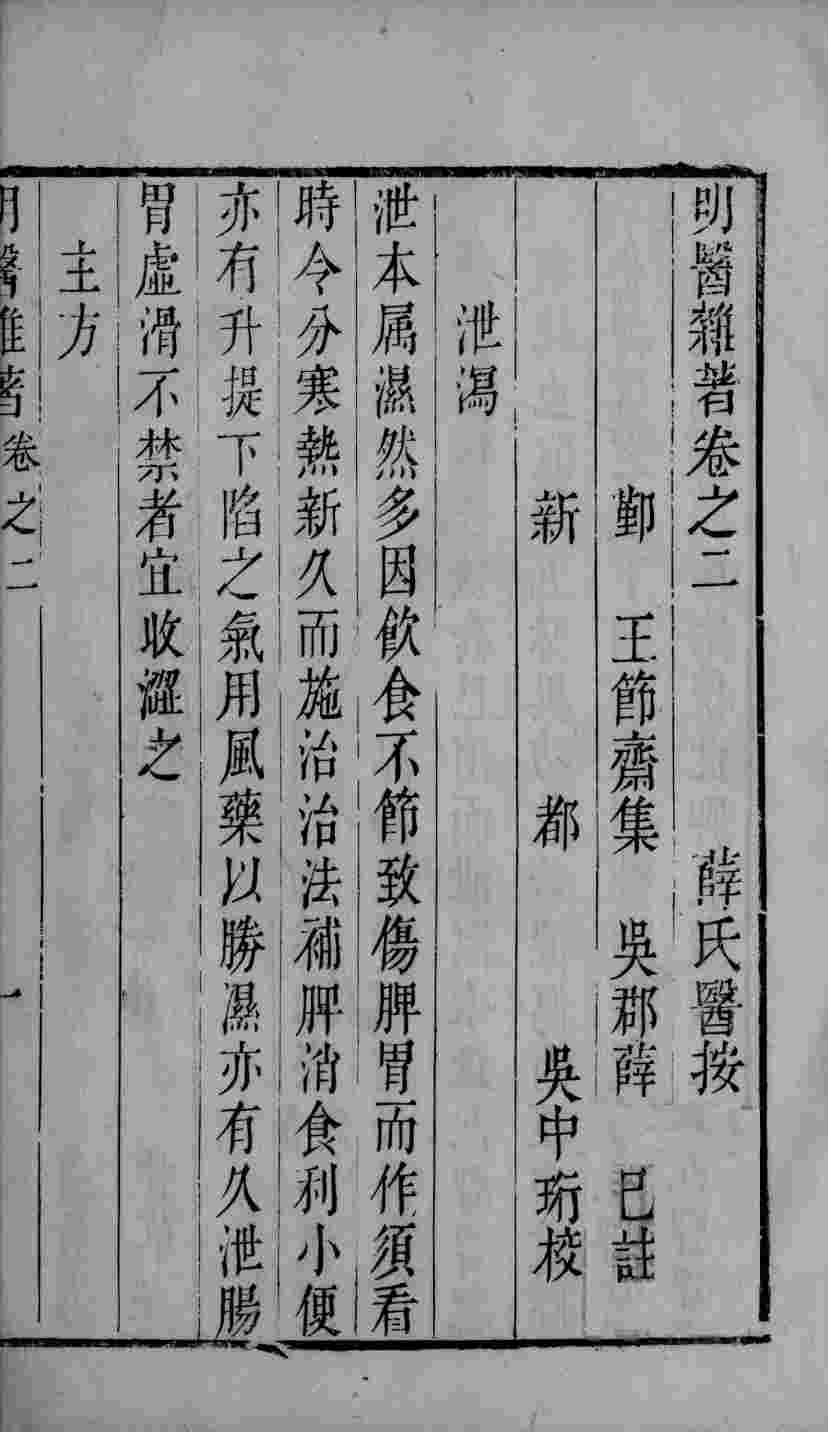 明醫雜著卷之二　薛氏醫按
鄞　王節齋集　吳郡薛　已註
新　都　吳中珩校
泄瀉
泄本属濕然多因飲食不節致傷脾胃而作須看
時令分寒熱新久而施治治法補脾消食利小便
亦有升提下陷之氣用風藥以勝濕亦有久泄腸
胃虛滑不禁者宜收澀之
主方
明醫雜著卷之二　一